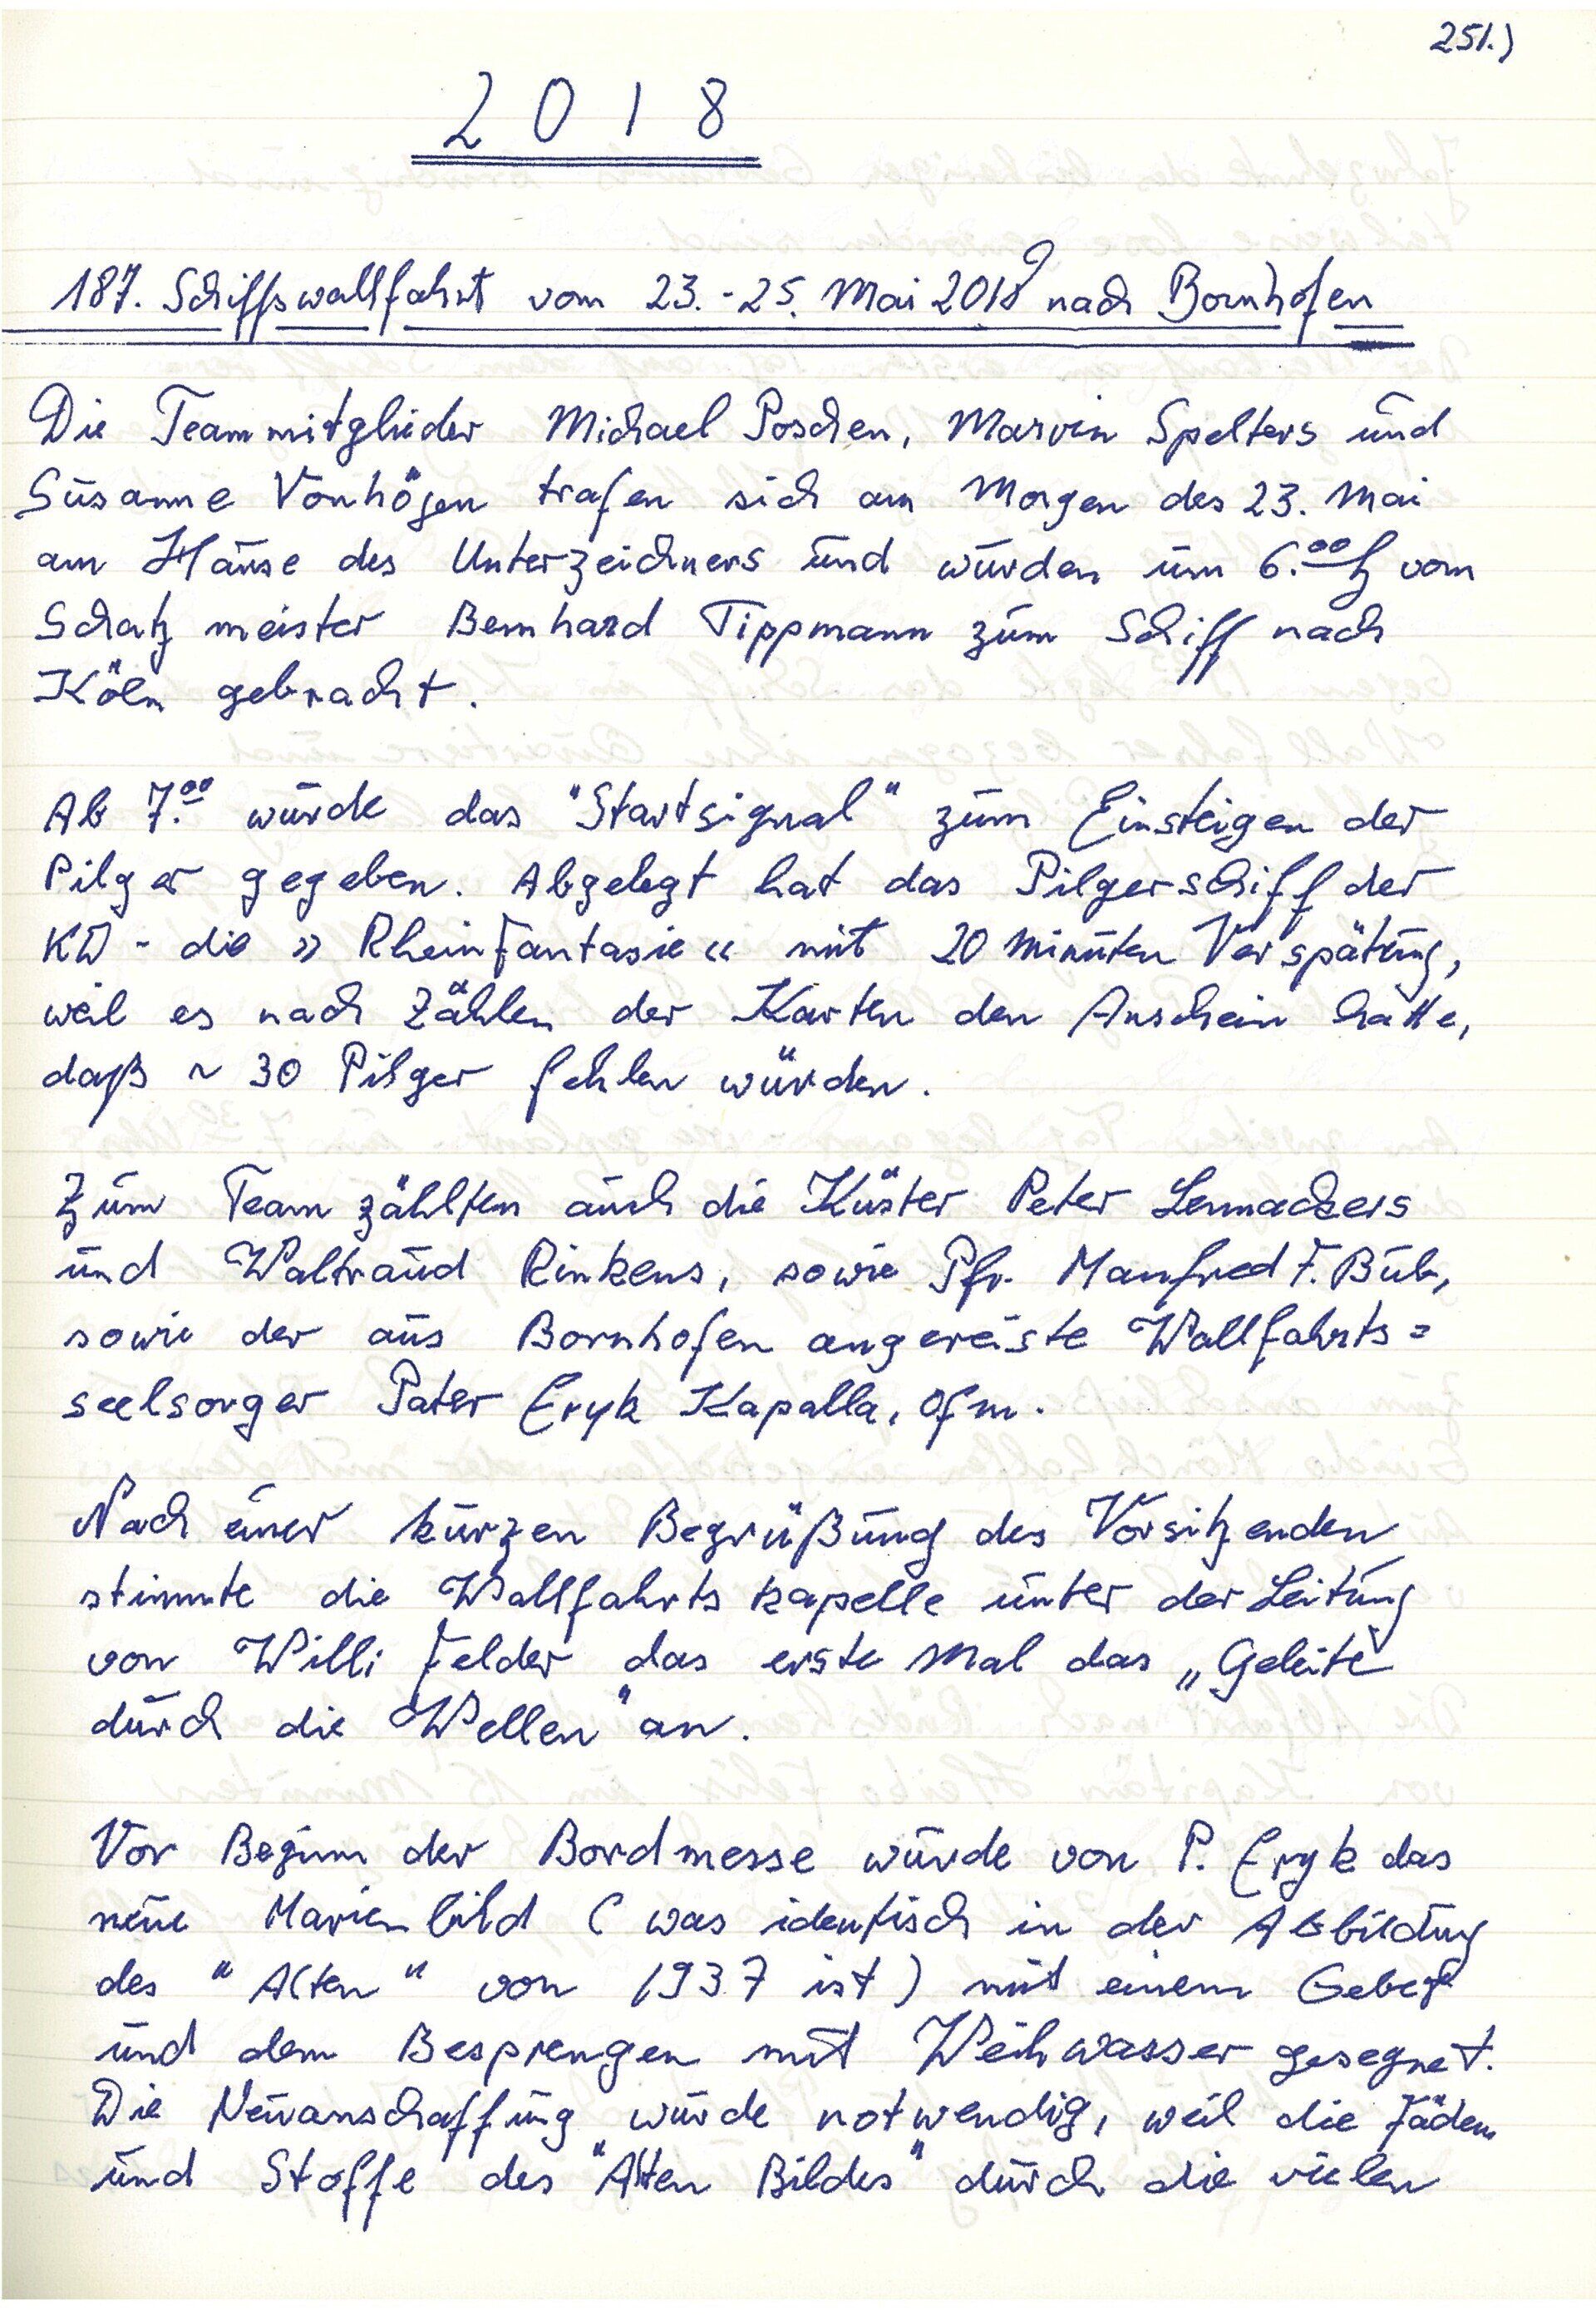 251.)
2018
187. Schiffswallfahrt vom 23.-25. Mai 2018 nach Bornhofen
Die Teammitglieder Michael Poschen, Marvin Spelters und
Susanne Vonhögen trafen sich am Morgen des 23. Mai
am Hause des Unterzeichners und wurden um 6.00 h vom
Schatzmeister Bernhard Tippmann zum Schiff nach
Köln gebracht.
Ab 7.00 wurde das "Startsignal" zum Einsteigen der
Pilger gegeben. Abgelegt hat das Pilgerschiff der
KD - die » Rheinfantasie « mit 20 Minuten Verspätung,
weil es nach Zählen der Karten den Anschein hatte,
daß ~ 30 Pilger fehlen würden.
Zum Team zählten auch die Küster Peter Lennackers
und Waltraud Rinkens, sowie Pfr. Manfred F. Bub,
sowie der aus Bornhofen angereiste Wallfahrts=
seelsorger Pater Eryk Kapalla, ofm.
Nach einer kurzen Begrüßung des Vorsitzenden
stimmte die Wallfahrtskapelle unter der Leitung
von Willi Felder das erste Mal das „Geleite
durch die Wellen" an.
Vor Beginn der Bordmesse wurde von P. Eryk das
neue Marienbild ( was identisch in der Abbildung
des "Alten" von 1937 ist ) mit einem Gebet
und dem Besprengen mit Weihwasser gesegnet.
Die Neuanschaffung wurde notwendig, weil die Fäden
und Stoffe des "Alten Bildes" durch die vielen